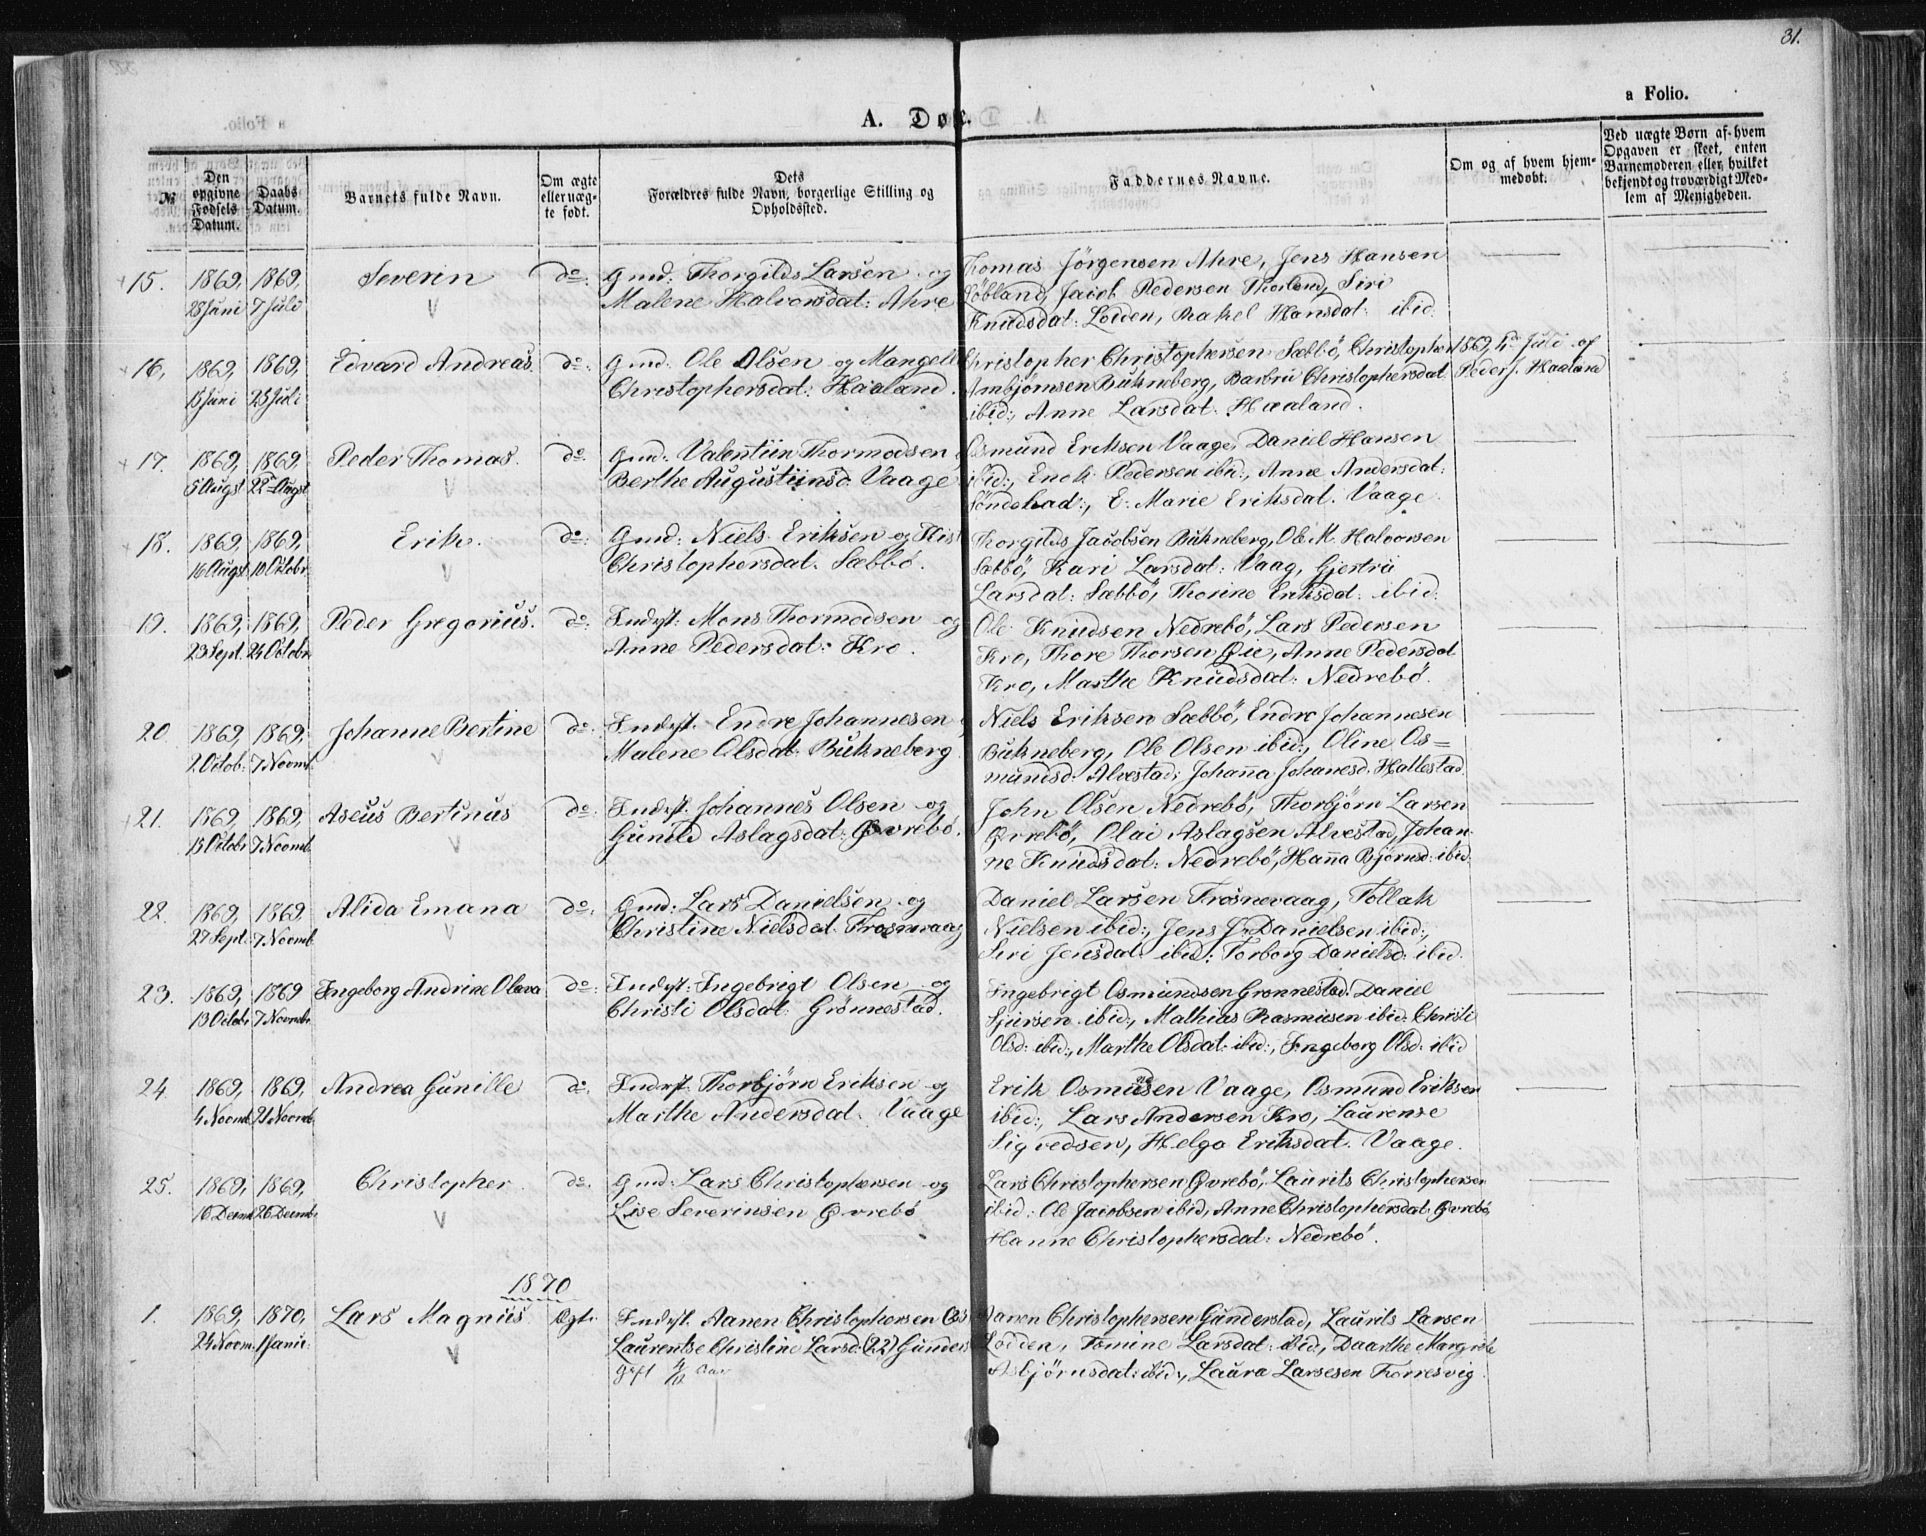 31.
a Folio.
A. Døb.
№
Den opgivne Fødsels Datum.
Daabs Datum.
Barnets fulde Navn.
Om ægte eller uægte født.
Dets
Forældres fulde Navn, borgerlige Stilling og
Opholdssted.
Faddernes Navne.
Om og af hvem hjemmedøbt.
Ved uægte Børn af hvem
Opgaven er skeet, enten
Barnemoderen eller hvilket
bekjendt og troværdigt Medlem af Menigheden.
15. 1869, 28 Juni 1869, 7 Juli Severin do: Gmd: Thorgilds Larsen og
Malene Halvorsdat: Ahre
Thomas Jörgensen Ahre, Jens Hansen
Jacob Pedersen Siri
Knudsdat: Lodden, Rakel Hansdat: ibid:
16, 1869, 15 Juni 1869, 25 Juli Edvard Andreas. do: Gmd: Ole Olsen og
Christophersdat: Haaland.
Christopher Christophersen Sæbbö, Christopher
Bukneberg, Barbru Christophersdat
ibid:, Anne Larsdat. Haaland.
1869, 4de Juli af
Peder J. Haaland
17. 1869, 5 Augst 1869, 22 Augst Peder Thomas. do: Gmd: Valentiin Thormodsen
Berthe Augustiinsd. Vaage
Osmund Eriksen Vaage, Daniel Hansen
ibid:, Enok Pedersen ibid:, Anne Andersdat:
E. Marie Eriksdat. Vaage
18. 1869, 16 Augst 1869, 10 Octobr Erik. do: Gmd: Niels Eriksen og
Christophersdat. Sæbbö.
Thorgilds Jacobsen Bukneberg, Ole M. Halvorsen
Sæbbö, Kari Larsdat: Vaag, Gjertru
Larsdat: Sæbbö, Thorine Eriksdat: ibid:
19. 1869, 23 Sept. 1869, 24 Octobr Peder Gregorius. do: Indyst: Mons Thormodsen og
Anne Pedersdat: Kro.
Ole Knudsen Nedrebö, Lars Pedersen
Kro, Thore Thorsen Anne Pedersdat
Kro, Marthe Knudsdat: Nedrebö.
20 1869, 2 Octob: 1869, 7 Novmb. Johanne Bertine do: Indyst. Endre Johannesen
Malene Olsdat Bukneberg
Niels Eriksen Sæbbö, Endre Johannesen
Bukneberg, Ole Olsen ibid:, Oline Os=
mundsd. Alvestad, Johanna Johanesd. Hallestad
21. 1869, 13 Octobr 1869, 7 Novmb. Aseus Bertinus do: Indyst. Johannes Olsen og
Gunild Aslagsdat: Øvrebö.
John Olsen Nedrebö, Thorbjørn Larsen
Øvrebö, Olai Aslagsen Alvestad, Johan-
ne Knudsdat: Nedrebö, Hanna Bjørnsd: ibid
22. 1869, 27 Sept. 1869. 7 Novmb Alida Emana do: Gmd: Lars Danielsen og
Christine Nielsdat.
Daniel Larsen Frosnevaag, Tollak
Nielsen ibid:, Jens J. Danielsen ibid:,
Siri Jensdat: ibid:, Torborg Danielsd: ibid.
23. 1869, 13 Octobr 1869 7 Novmbr Ingeborg Andrine Olava do: Indyst: Ingebrigt Olsen og
Christi Olsdat: Grönnestad.
Ingebrigt Osmundsen Grønnestad, Daniel
Sjursen ibid:, Mathias Rasmusen ibid: Christi
Olsd: ibid:, Marthe Olsdat: ibid:, Ingeborg Olsd: ibid
24. 1869, 4 Novmb. 1869, 21 Novmb. Andrea Gunille do: Indyst. Thorbjörn Eriksen og
Marthe Andersdat. Vaage
Erik Osmundsen Vaage, Osmund Eriksen
ibid:, Lars Andersen Kro, Laurense
Sigvedsen, Helga Eriksdat. Vaage.
25. 1869, 16 Decmb 1869, 26 Decmb. Christopher do: Gmd: Lars Christophersen og
Lise Severinsen Øvrebö
Lars Christophersen Øvrebö, Laurits Christophersen
ibid: Ole Jacobsen ibid, Anne Christophersdat. Øvrebö,
Hanne Christophersdat: Nedrebö.
1870
1. 1869, 24 Novm. 1870, 1 Janu: Lars Magnus Ægte Indyst. Aanen Christophersen
Laurentse Christine Larsd: (22)
gift
Aanen Christophersen Gunderstad, Laurits Larsen
Lodden, Tomine Larsdat: ibid, Daarthe Margrete
Asbjörnsdat: ibid:, Laura Larsesen Torresvig